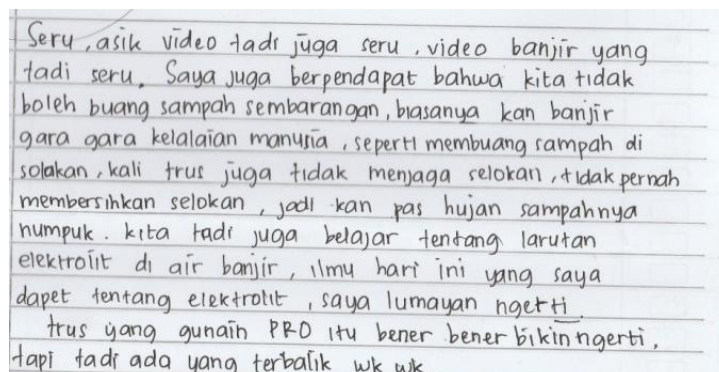 Seru, asik video tadi juga seru, video banjir yang
tadi seru. Saya juga berpendapat bahwa kita tidak
boleh buang sampah sembarangan, biasanya kan banjir
gara gara kelalaian manusia, seperti membuang sampah di
solakan, kali trus juga tidak menjaga selokan, tidak pernah
membersihkan selokan, jadi kan pas hujan sampahnya
numpuk. kita tadi juga belajar tentang larutan
elektrolit di air banjir, ilmu hari ini yang saya
dapet tentang elektrolit, saya lumayan ngerti
trus yang gunain PRO itu bener bener bikin ngerti,
tapi tadi ada yang terbalik wk wk